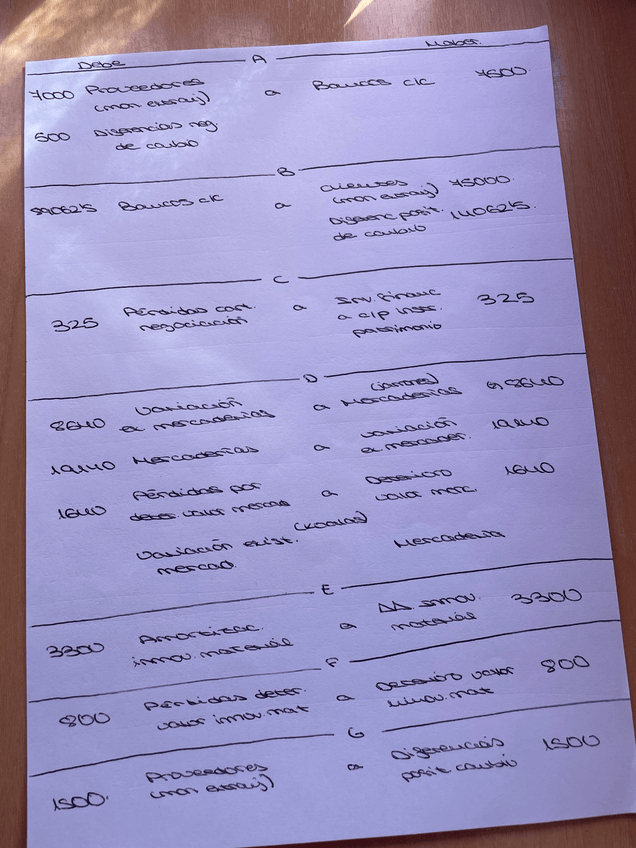 Debe A Haber
7000 Proveedores a Bancos c/c 7500
(mon extranj)
500 Diferencias neg.
de cambio
B
Bancos c/c a Clientes 75000
(mon extranj)
Diferenc posit. 140625.
de cambio
C
325 Pérdidas cart. a Inv. financ 325
negociación a c/p instr.
patrimonio
D
8640 Variación a (jarrones) 8640
ex mercaderías Mercaderías
19140 Mercaderías a variación 19140
ex mercader.
1640 Pérdidas por a Deterioro 1640
deter. valor mercad valor merc.
(Koalas)
Variación exist. Mercadería
mercad.
E
3300 Amortizac. a AA inmov. 3300
inmov. material material
F
800 Pérdidas deter. a Deterioro valor 800
valor inmov. mat inmov. mat
G
1500. Proveedores a Diferencias 1500
(mon extranj) posit cambio